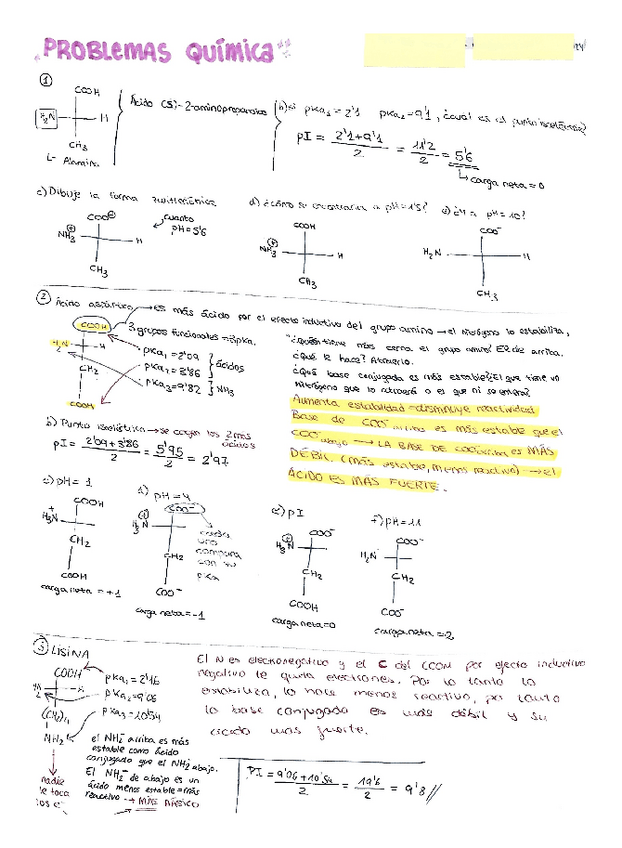 PROBLEMAS QUÍMICA
①
COOH
H₂N
H
CH₃
L- Alanina
Ácido (S)-2-aminopropanoico
b) si pKa₁ = 2'1 pKa₂ = 9'1, ¿cuál es el punto isoeléctrico?
pI = 2'1+9'1 / 2 = 11'2 / 2 = 5'6
↳ carga neta = 0
c) Dibuje la forma zwitteriónica
cuanto
pH = 5'6
COO⊖
NH₃⊕
H
CH₃
d) ¿cómo se encontraría a pH = 1'5?
COOH
NH₃⊕
H
CH₃
e) ¿Y a pH = 10?
COO⁻
H₂N
H
CH₃
② Ácido aspártico → es más ácido por el efecto inductivo del grupo amino → el nitrógeno lo estabiliza,
COOH
H₂N
H
CH₂
COOH
3 grupos funcionales = 3pKa.
pKa₁ = 2'09
pKa₂ = 3'86
ácidos
pKa₃ = 9'82 } NH₃
¿quién tiene más cerca el grupo amino? El de arriba.
¿Qué le hace? Atraerlo.
¿Qué base conjugada es más estable? El que tiene un
nitrógeno que lo atraerá o el que ni se entera?
Aumenta estabilidad = disminuye reactividad
Base de COO⁻ arriba es más estable que el
COO⁻ abajo → LA BASE DE COO⁻ arriba es MÁS
DÉBIL. (más estable, menos reactivo) → el
ÁCIDO ES MÁS FUERTE.
b) Punto isoeléctrico → se cogen los 2 más
ácidos
pI = 2'09+3'86 / 2 = 5'95 / 2 = 2'97
c) pH = 1
COOH
H₃N⁺
CH₂
COOH
carga neta = +1
d) pH = 4
COO⁻
H₃N⊕
CH₂
COO⁻
carga neta = -1
cada
uno
compara
con su
pKa
e) pI
COO⁻
H₃N⊕
CH₂
COOH
carga neta = 0
f) pH = 11
COO⁻
H₂N
CH₂
COO⁻
carga neta = -2
③ LISINA
COOH
H
(CH₂)₄
NH₂
pKa₁ = 2'16
pKa₂ = 9'06
pKa₃ = 10'54
nadie
le toca
los e⁻
el NH₂ arriba es más
estable como ácido
conjugado que el NH₂ abajo.
El NH₂ de abajo es un
ácido menos estable = más
reactivo → MÁS BÁSICO
El N es electronegativo y el C del COOH por efecto inductivo
negativo le quita electrones. Por lo tanto lo
estabiliza, lo hace menos reactivo, por tanto
la base conjugada es más débil y su
ácido más fuerte.
PI = 9'06+10'54 / 2 = 19'6 / 2 = 9'8 //